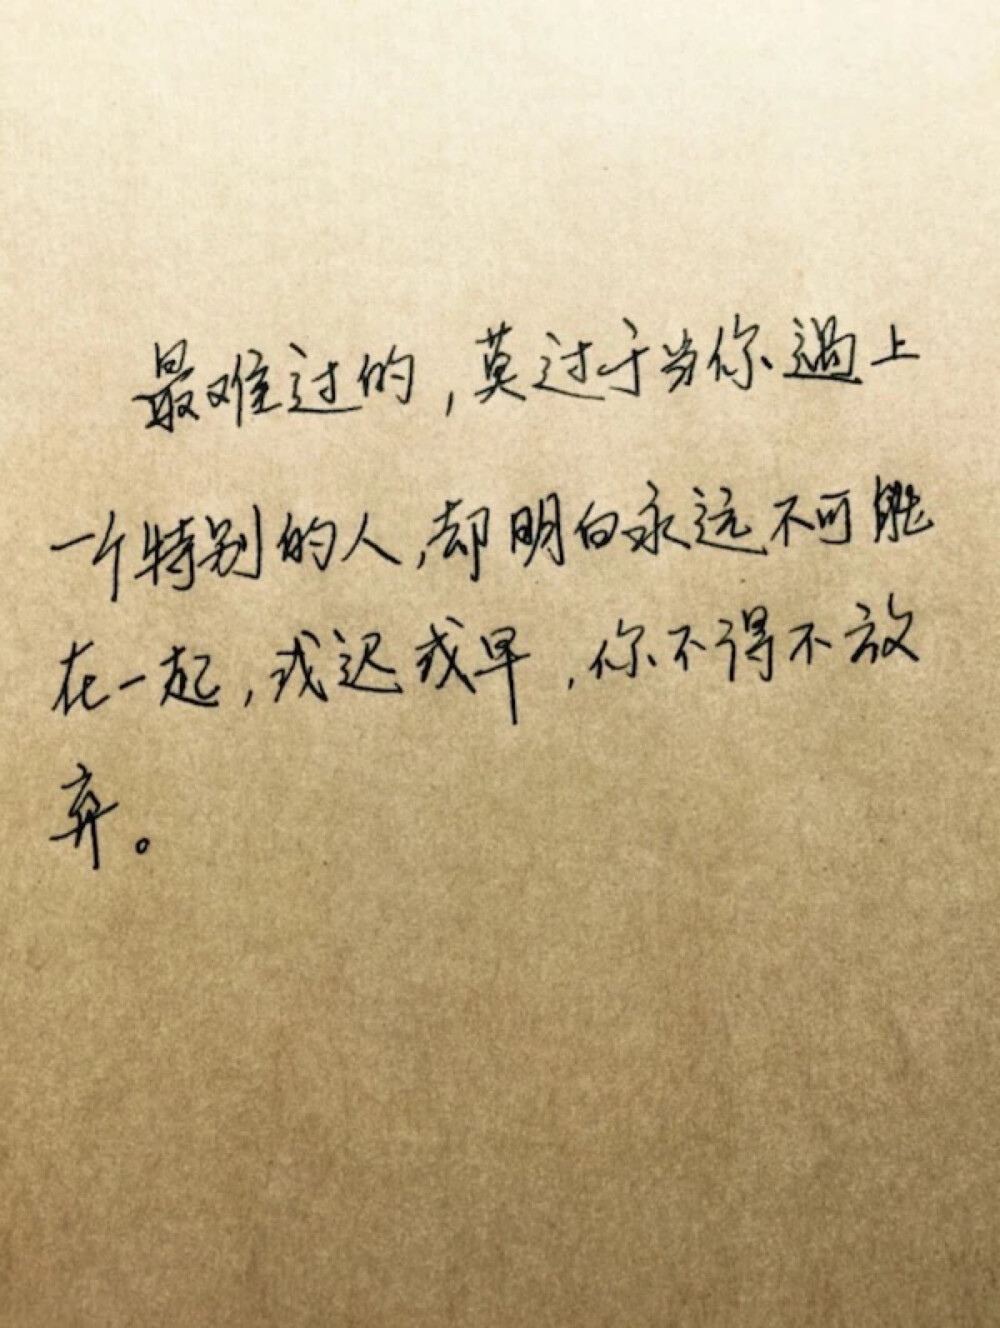 最难过的，莫过于当你遇上
一个特别的人，却明白永远不可能
在一起，或迟或早，你不得不放
弃。